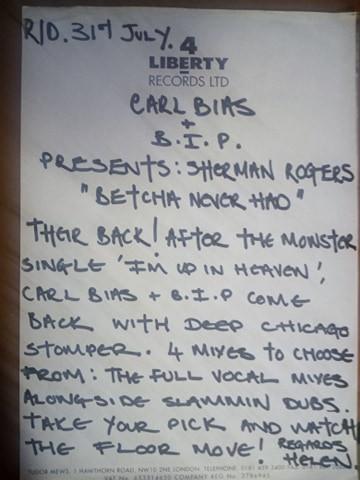 R/D. 31st JULY.
4
LIBERTY
RECORDS LTD
CARL BIAS
+
B.I.P.
PRESENTS: SHERMAN ROGERS
"BETCHA NEVER HAD"
THEIR BACK! AFTER THE MONSTER
SINGLE 'I'M UP IN HEAVEN',
CARL BIAS + B.I.P COME
BACK WITH DEEP CHICAGO
STOMPER. 4 MIXES TO CHOOSE
FROM: THE FULL VOCAL MIXES
ALONGSIDE SLAMMIN DUBS.
TAKE YOUR PICK AND WATCH
THE FLOOR MOVE! REGARDS
HELEN
TUDOR MEWS, 1 HAWTHORN ROAD, NW10 2NE LONDON. TELEPHONE: 0181
VAT No. COMPANY REG No.